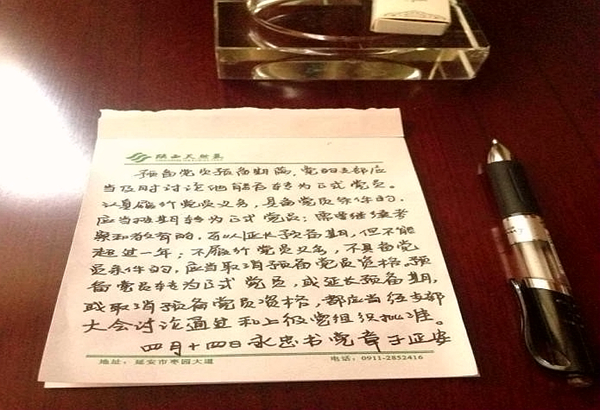 陕西天然气
预备党员预备期满，党的支部应
当及时讨论他能否转为正式党员。
认真履行党员义务，具备党员条件的，
应当按期转为正式党员；需要继续考
察和教育的，可以延长预备期，但不能
超过一年；不履行党员义务，不具备党
员条件的，应当取消预备党员资格。预
备党员转为正式党员，或延长预备期，
或取消预备党员资格，都应当经支部
大会讨论通过和上级党组织批准。
四月十四日永忠书党章于延安
地址：延安市枣园大道 电话：0911-2852416